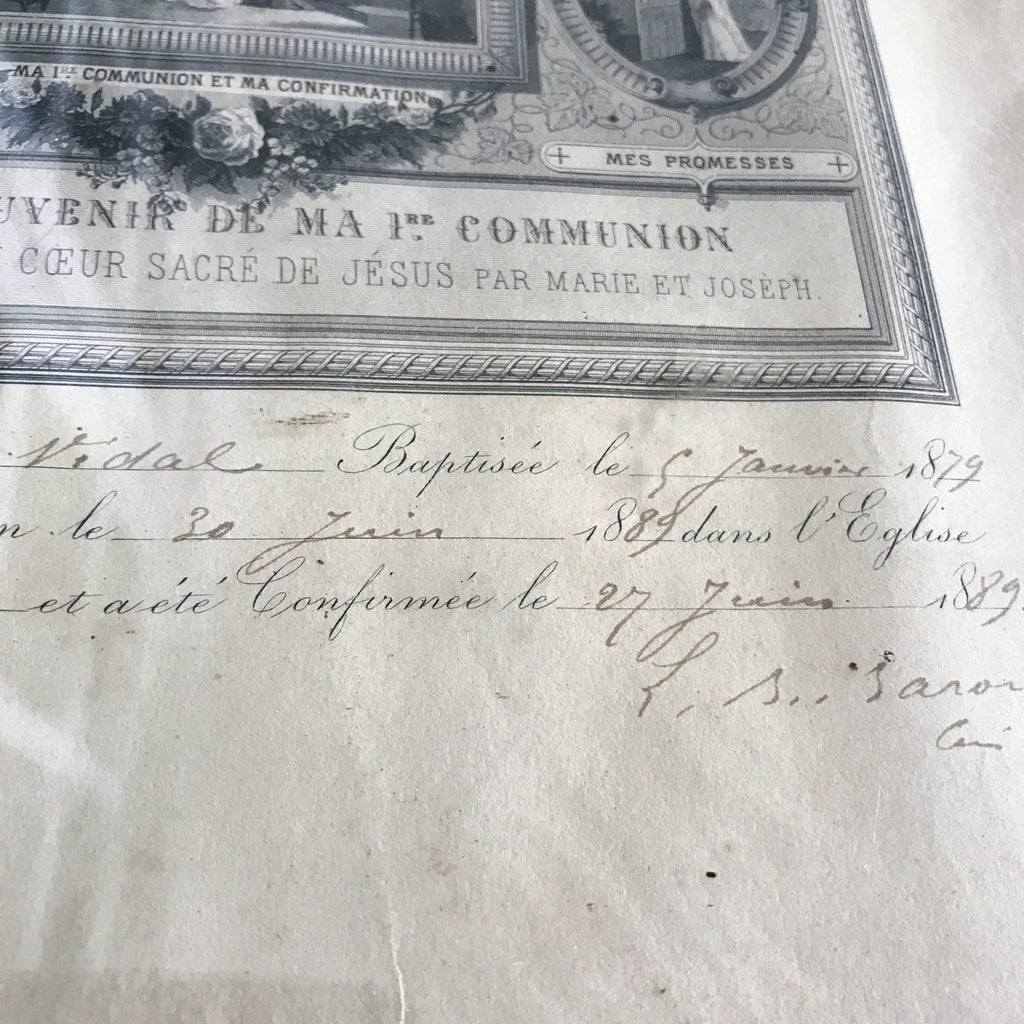 MA 1RE COMMUNION ET MA CONFIRMATION
MES PROMESSES
UVENIR DE MA 1RE COMMUNION
CŒUR SACRÉ DE JÉSUS PAR MARIE ET JOSÈPH.
Vidal Baptisée le 5 Janvier 1879
n le 30 Juin 1889 dans l'Eglise
et a été Confirmée le 27 Juin 1889.